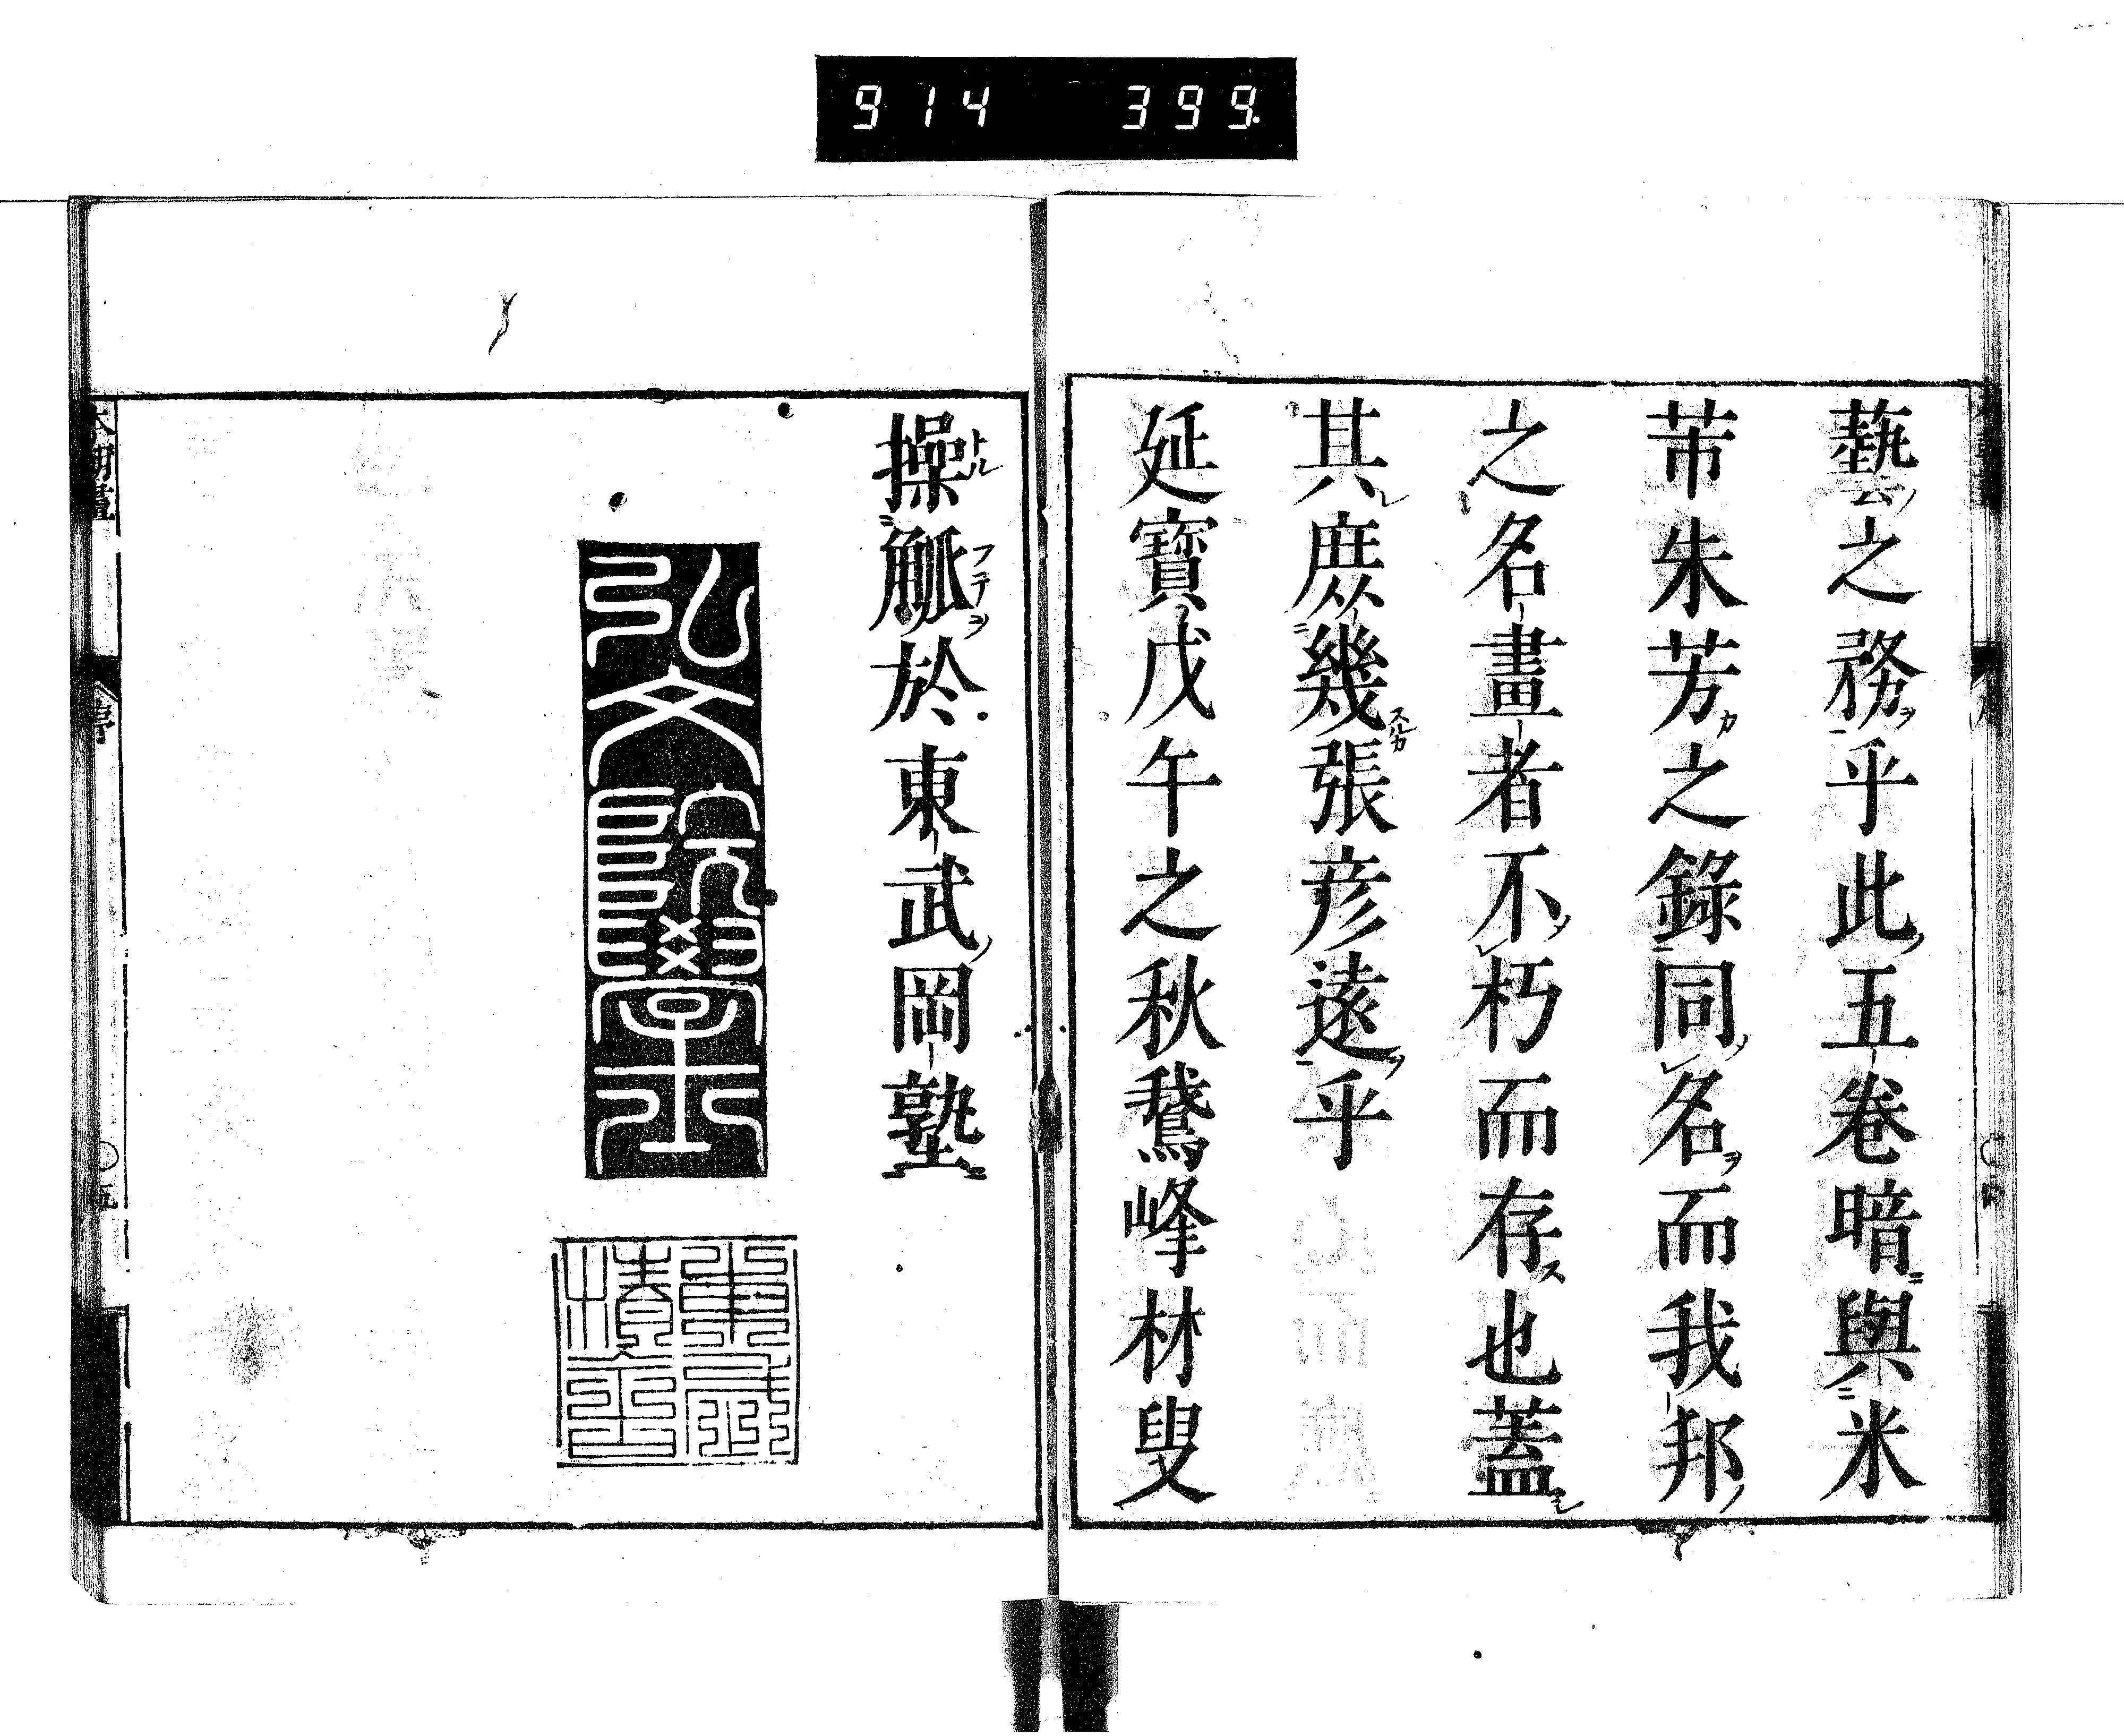 914 399
藝之務乎此五卷暗與米
芾朱芳之錄同名而我邦
之名畫者不朽而存也蓋
其庶幾張彦遠乎
延寶戊午之秋鵞峰林叟
操觚於東武岡塾
弘文院學士